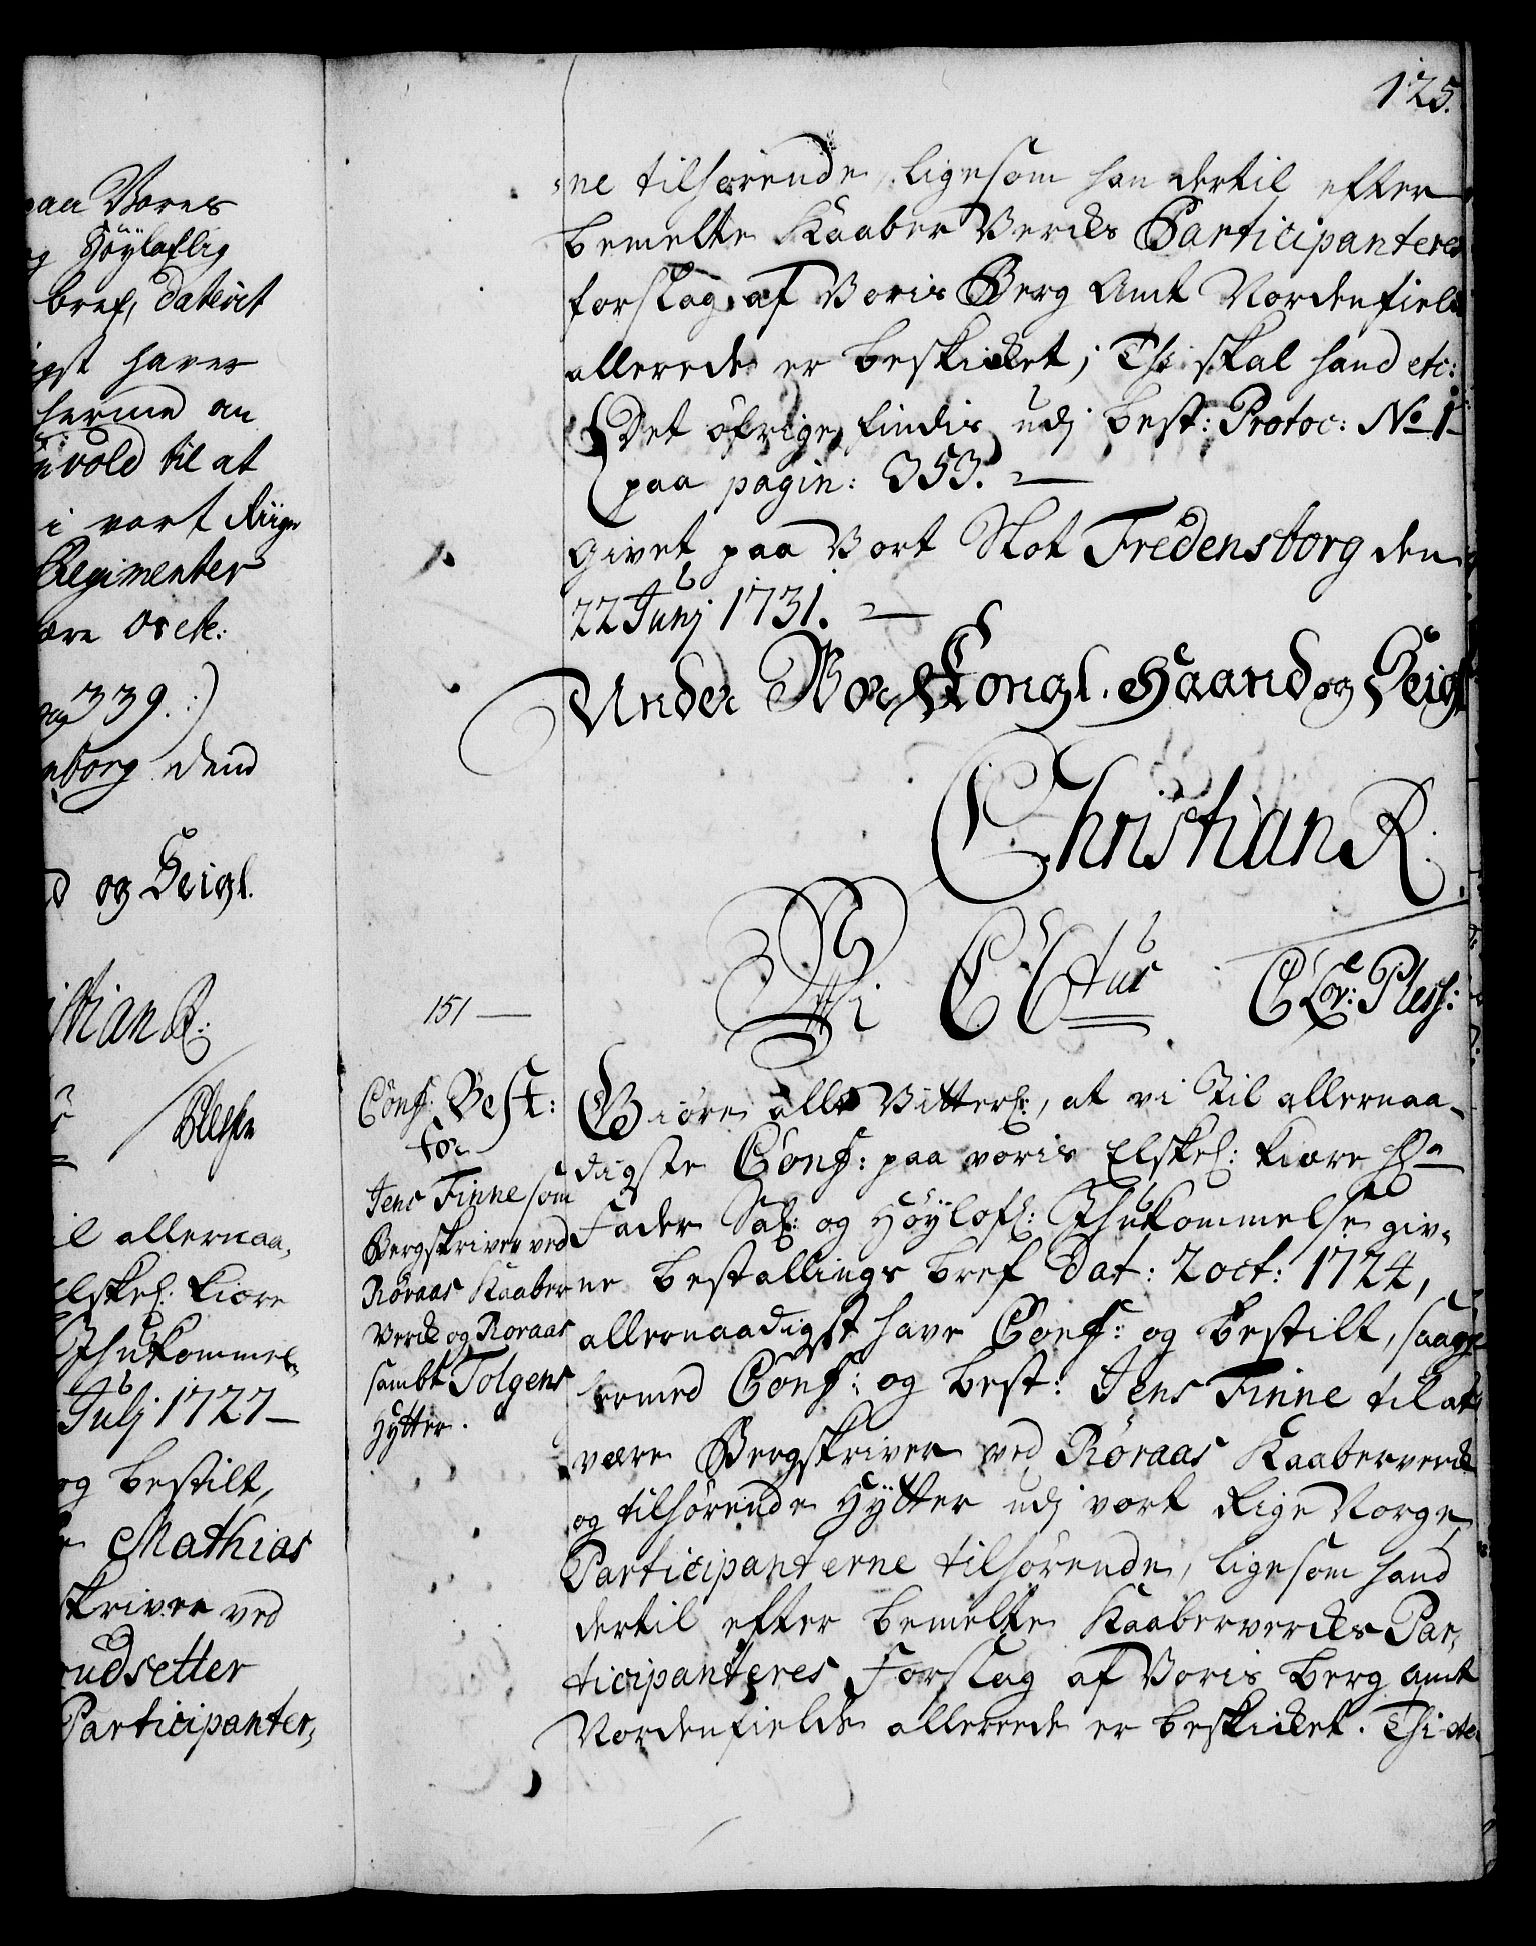 125.
paa Vores
og Höyloflig
bref, dateret
igst haver
herme an
nvold til at
i vort Riige
Regimenter
ære os etc:
pag 339. :)
nborg dend
d og Seigl.
istian R:
Plessen
il allernaa,
Elskel: kiære
Ihukommel,
Julj 1727 —
og bestilt,
Mathias
skriver ved
rudsetter
Participanter,
ne tilhørende, ligesom han dertil efter
bemelte Kaaber Vercks Participanteres
forslag af Voris Berg Amt Nordenfields
allerede er beskicket; Thi skal hand etc:
Det öfrige findis udj best: Protoc: No 1
paa pagin: 353. —
Givet paa Vort Slot Fredensborg den
22 Junj 1731. —
Under Vor Kongl. Haand og Seigl
Christian R.
151 —
Vi C 6tus C Lov: Pless:
Conf: Best:
for
Jens Finne som
Bergskriver ved
Röraas Kaaber
Verck og Roraas
sambt Tolgens
Hytter.
Giöre alle Vitterl:, at vi Til allernaa-
digste Conf: paa voris Elskel: kiære Hr
Fader Sal: og Höylofl: Ihukommelse giv-
ne bestallings bref dat: 2 oct: 1724,
allernaadigst have Conf: og bestilt, saa og
hermed Conf: og best: Jens Finne til at
være Bergskriver ved Röraas Kaaberverck
og tilhörende Hytter udj vort Rige Norge,
Participanterne tilhörende, ligesom hand
dertil efter bemelte Kaabervercks Par,
ticipanteres Forslag af Voris berg amt
Nordenfields allerede er beskicket. Thi etc.